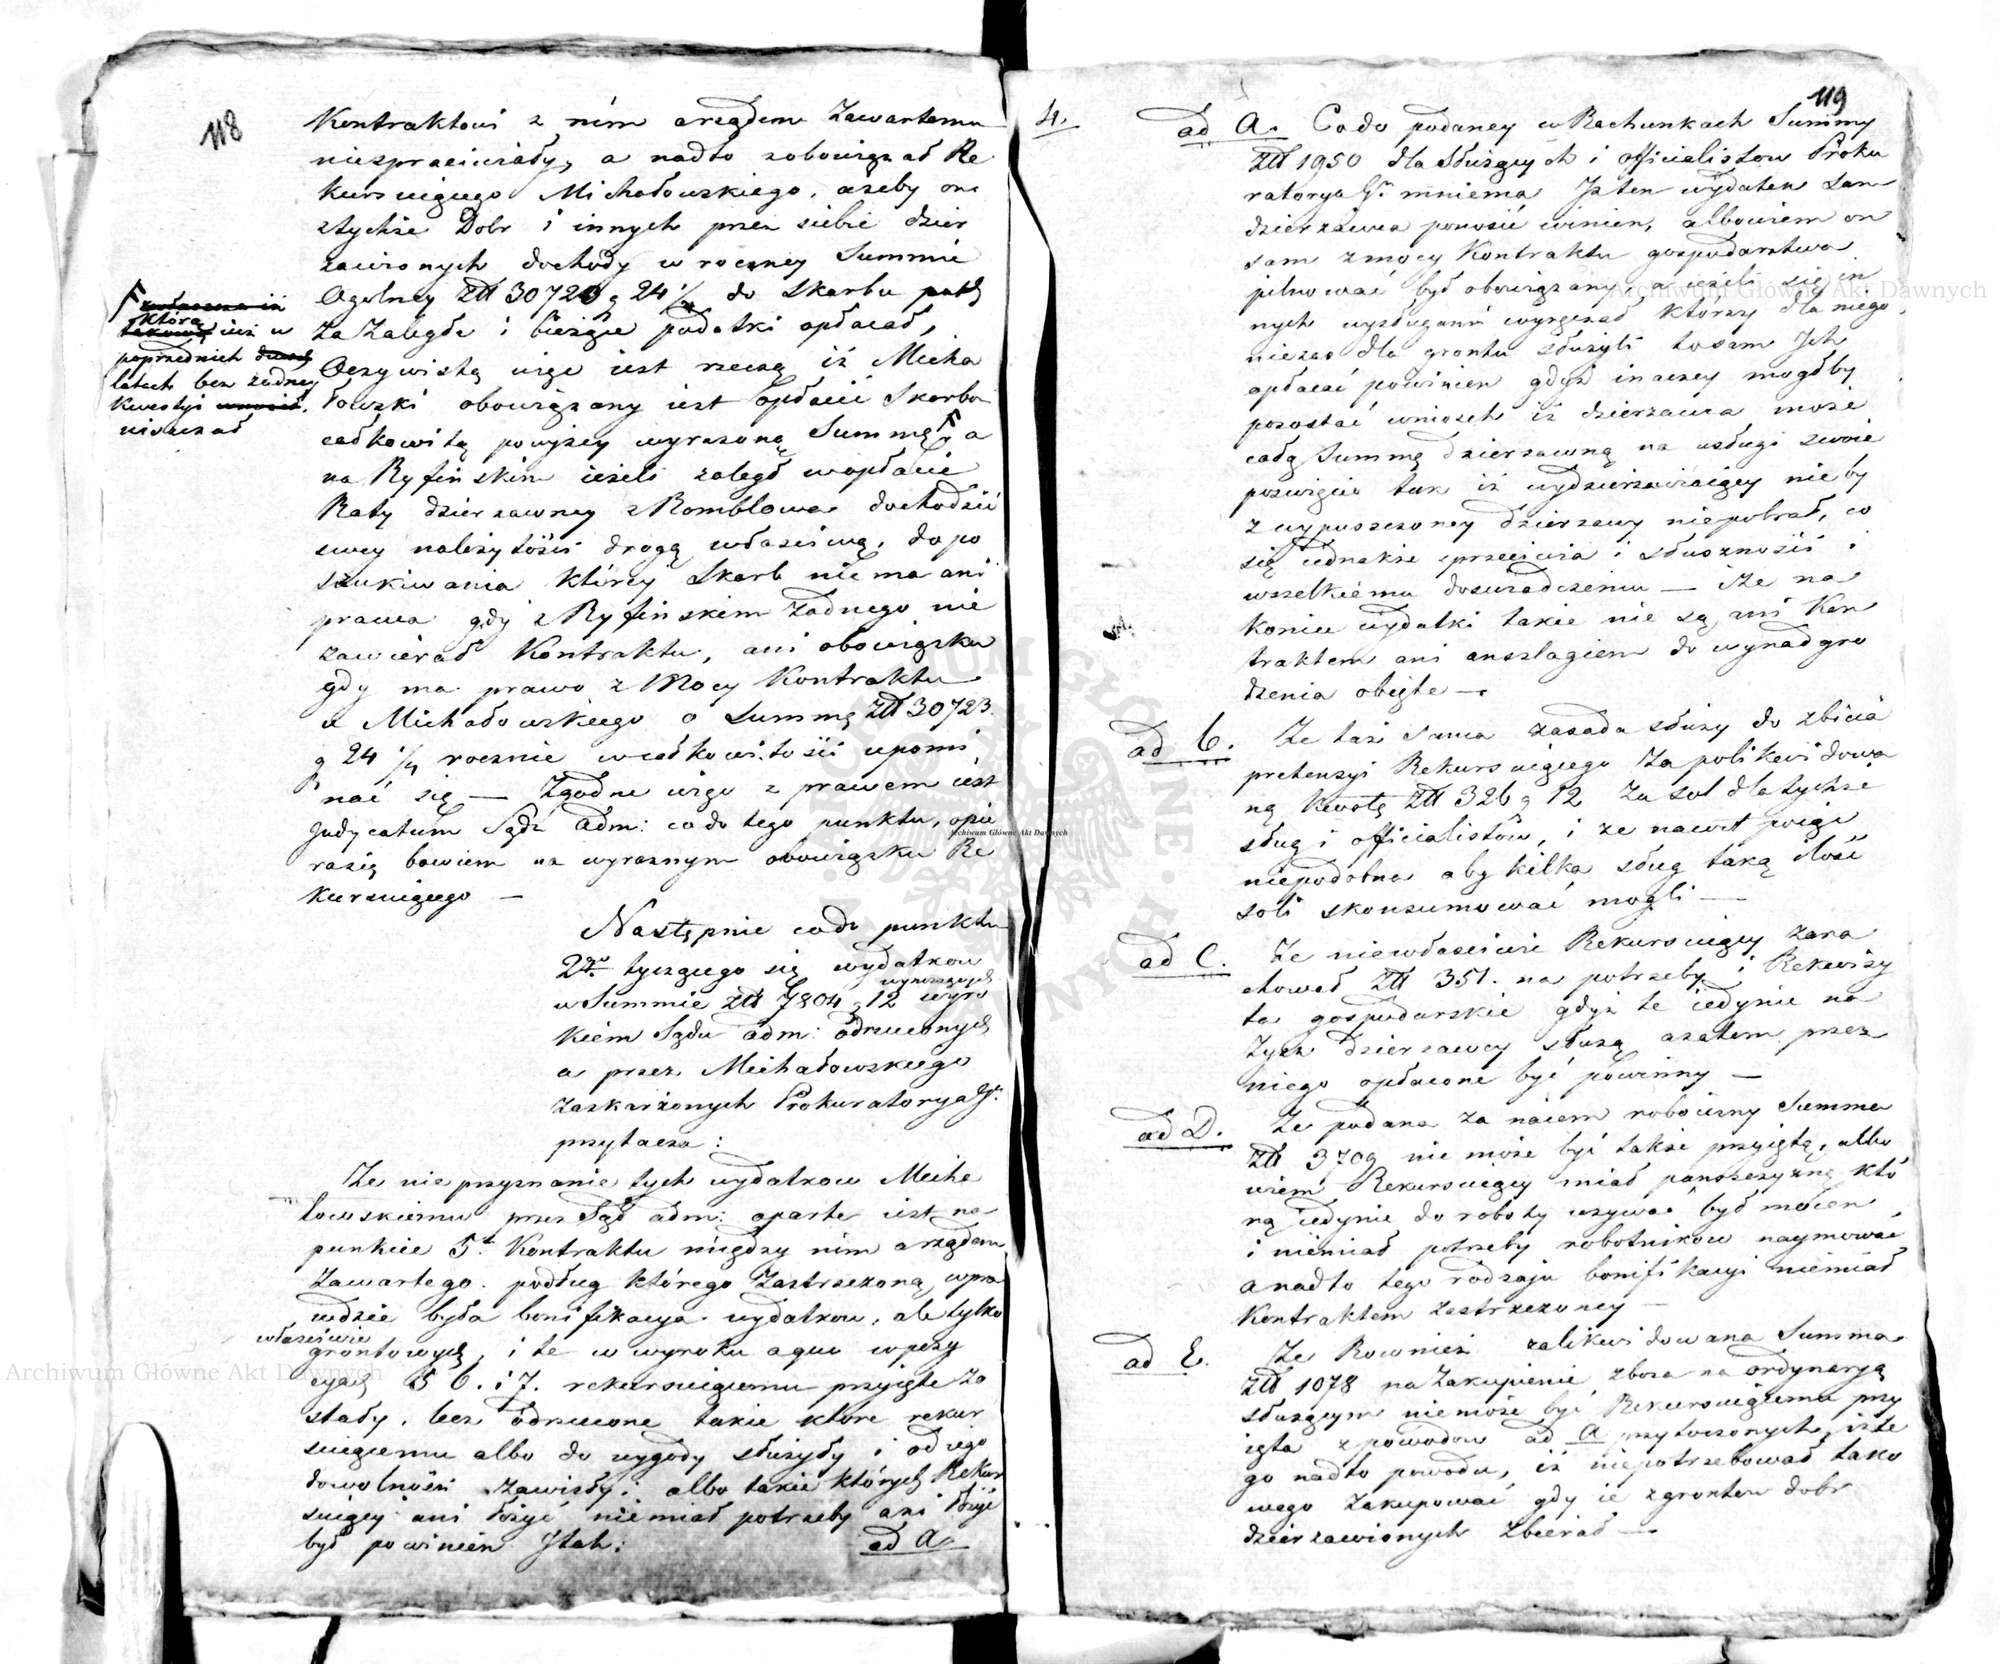 118
Kontraktowi z nim a rządem Zawartemu
niesprzeciwiały, a nadto zobowiązał Re
kursuiącego Michałowskiego, ażeby on
z tychże Dobr i innych przez siebie dzier
zawionych dochody w roczney Summie
Ogolney Złł 30723 g 24 1/4 do Skarbu
za Zaległe i bieżące podatki opłacał,
Oczywistą więc iest rzeczą iż Micha
łowski obowiązany iest opłacić Skarbo
całkowitą powyżey wyrazoną Summę a
na Ryfińskim ieżeli zaległ w opłacie
Raty dzierzawney z Romblowa dochodzić
swey należytości drogą właściwą, do po
szukiwania którey Skarb nie ma ani
prawa gdy z Ryfińskim żadnego nie
zawierał Kontraktu, ani obowiązku
gdy ma prawo z Mocy Kontraktu
u Michałowskiego o Summę Złł 30723.
g 24 1/4 rocznie w całkowitości upomi
nać się — Zgodne więc z prawem iest
Judycatum Sądu adm: co do tego punktu, opie
ra się bowiem na wyraznym obowiązku Re
kursuiącego —
która
iuż w
poprzednich
latach bez żadney
kwestyi
uiszczał
Następnie co do punktu
2go tyczącego się wydatkow
wynoszących
w Summie złł 7804 g 12 wyro
kiem Sądu adm: odrzuconych
a przez Michałowskiego
zaskarżonych Prokuratorya Gn.
przytacza:
Że nie przyznanie tych wydatkow Micha
łowskiemu przez Sąd adm: oparte iest na
punkcie 5t Kontraktu między nim a rządem
Zawartego podług którego Zastrzeżoną wpra
wdzie była bonifikacya wydatkow, ale tylko
właściwie
grontowych, i te w wyroku a quo w pozy
cyach 5 6. i 7. rekursuiącemu przyięte Zo
stały, lecz odrzucone takie które rekur
suiącemu albo do wygody służyły i od iego
dowolności zawisły; albo takie których Rekur
suiący ani łożyć nie miał potrzeby ani łożyć
był powinien Jtak:
ad A.
119
4.
ad A. Co do podaney w Rachunkach Summy
Złł 1950 dla Służących i officialistow Proku
ratorya Gn. mniema Iż ten wydatek sam
dzierzawca ponosić winien, albowiem on
sam z mocy Kontraktu gospodarstwa
pilnować był obowiązany, a ieżeli się in
nych wysługami wyręczał którzy dla niego
nie zas dla grontu służyli to sam Ich
opłacać powinien gdyż inaczey mogłby
pozostać wniosek iż dzierzawca może
całą Summę dzierzawną na usługi swoie
poswięcić tak iż wydzierżawiaiący nie by
z wypuszczoney dzierzawy nie pobrał, co
się iednakże sprzeciwia i słuszności i
wszelkiemu doswiadczeniu — Że na
koniec wydatki takie nie są ani Kon
traktem ani anszlagiem do wynadgro
dzenia obięte —
ad B. Że taż sama zasada służy do zbicia
pretensyi Rekursuiącego Za polikwidowa
ną kwotę Złł 326 g 12 za sol dla tychże
sług i officialistów, i ze nawet
niepodobna aby kilka sług taką ilość
soli skonsumować mogli —
ad C. Że niewłaściwie Rekursuiący zara
chował Złł 351. na potrzeby i Rekwizy
ta gospodarskie gdyż te iedynie na
Zysk dzierzawcy służą a zatem przez
niego opłacone być powinny —
ad D. Że podana za naiem robocizny Summa
Złł 3709 nie może być także przyiętą, albo
wiem Rekursuiący miał panszczyznę któ
rą iedynie do roboty uzywać był mocen,
i niemiał potrzeby robotnikow naymować
a nadto tego rodzaju bonifikacyi niemiał
Kontraktem zastrzeżoney —
ad E. Że Rownież zalikwidowana Summa
Złł 1078 na Zakupienie zboza na ordynaryą
służącym niemoże być Rekursuiącemu przy
ięta z powodow ad A przytoczonych, i z te
go nadto powodu, iż niepotrzebował tako
wego Zakupować gdy ie z grontow dobr
dzierzawionych Zbierał —
Archiwum Główne Akt Dawnych
Archiwum Główne Akt Dawnych
Archiwum Główne Akt Dawnych